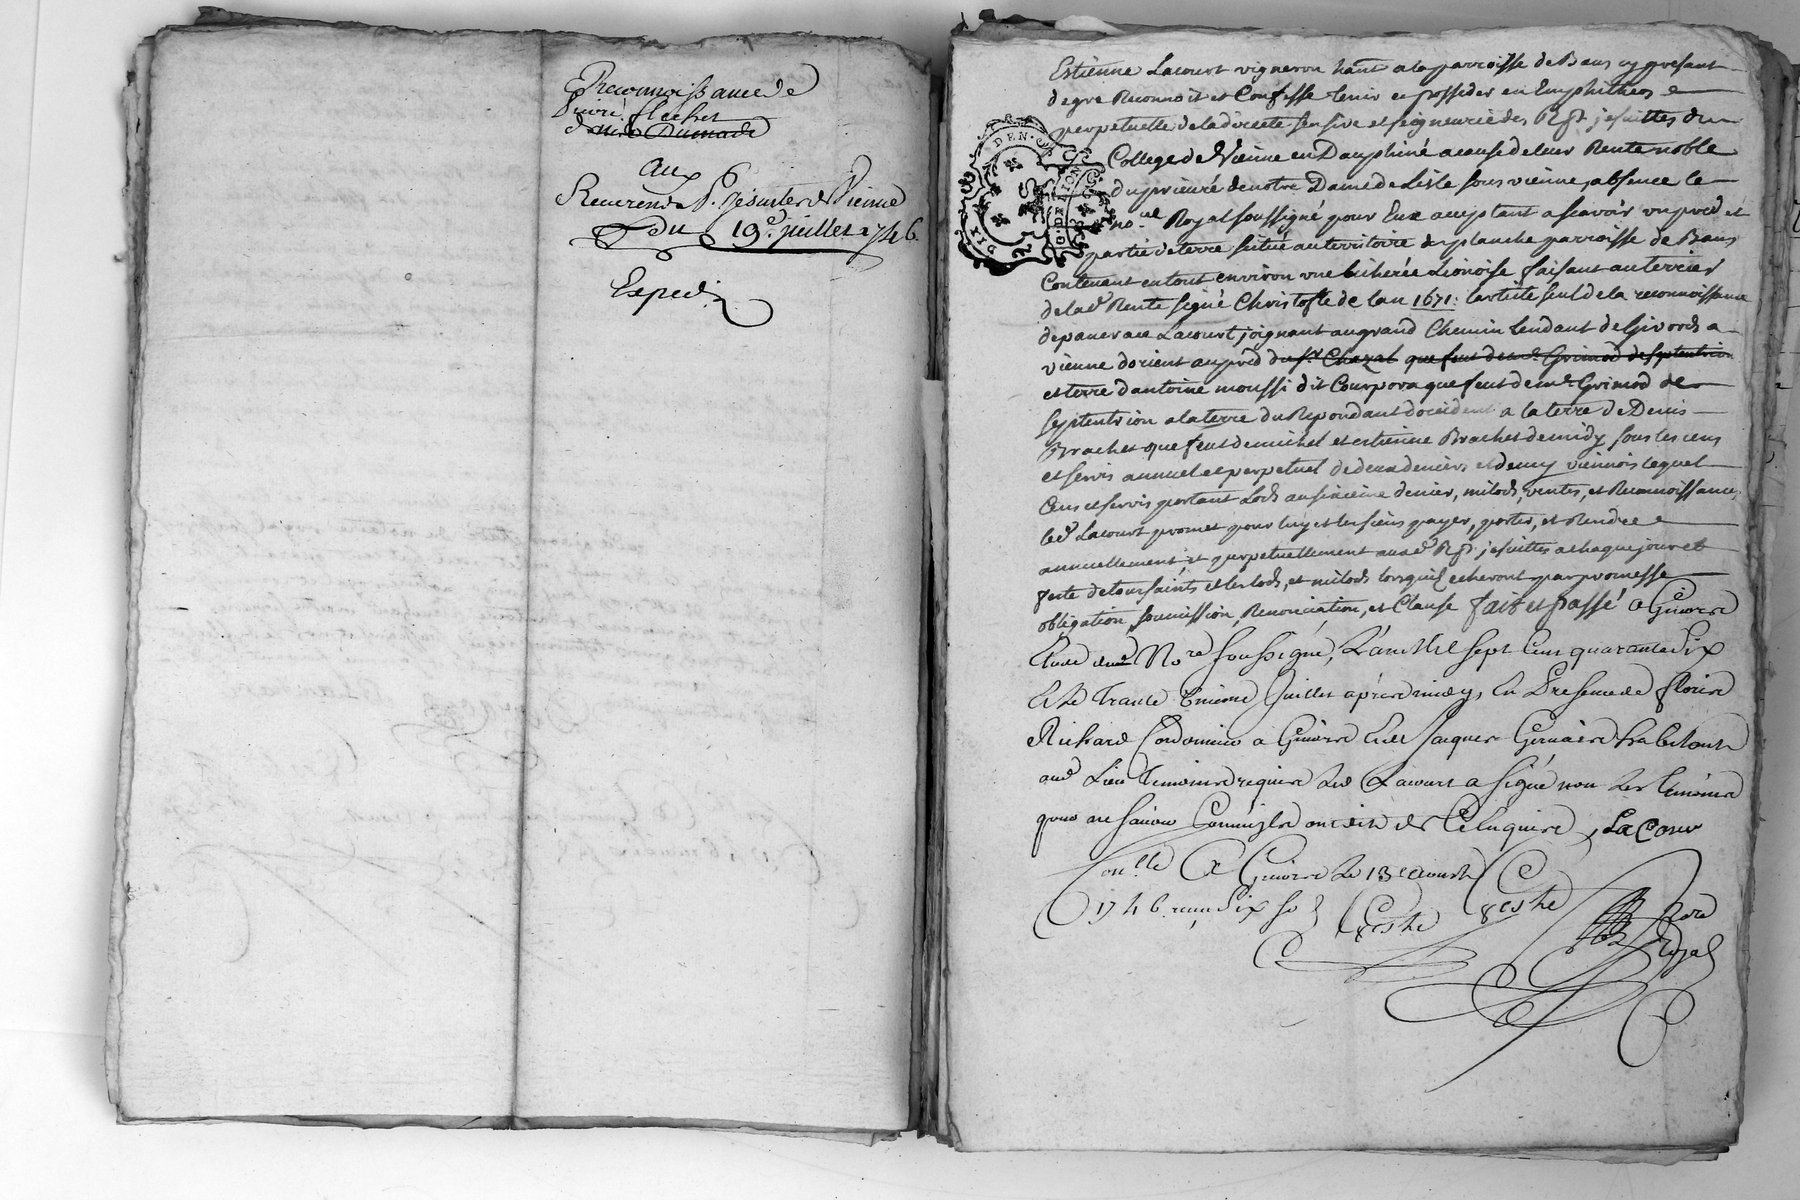 Reconnoissance de
Pierre flechet
Aux
Reverends P. Jesuites de Vienne
Du 19e juillet 1746
Expedié
Estienne Lacourt vigneron hant a la parroisse de Bans cy present
de gre Reconnoit et Confesse tenir et posseder en Emphitheos e
perpetuelle de la directe sensive et seigneurie des Rds. P. jesuittes du
College de Vienne en Dauphiné a cause de leur Rente noble
du prieuré de notre Dame de Lisle sous vienne, absence le
nore Royal soussigné pour Eux acceptant a scavoir un pred et
partie de terre situé au territoire du planche parroisse de Bans
Contenant en tout environ une bicherée Lionoise faisant au terrier
de lade Rente signé Christofle de lan 1671. larticle seul de la reconnoissance
de pancrace Lacourt joignant au grand Chemin tendant de Givords a
vienne dorient au pred du sr. Chazal que fut de mr. Grimod de septentrion
et terre dantoine moussi dit Courpora que feut de mr. Grimod de
septentrion a la terre du Repondant doccident a la terre de Denis
Brachet que feut de michel et estienne Brachet de midy sous les cens
et servis annuel et perpetuel de deux deniers et demy viennois lequel
Cens et servis portant Lods au sixieme denier, milods, ventes, et Reconnoissances
led Lacourt promet pour luy et les siens payer, porter, et Rendre
annuellement et perpetuellement auxd Rds. P. jesuittes a chaque jour et
feste de toussaints et les lods, et milods lorsquils echeront par promesse
obligation, soumission, Renonciation, et Clause fait et passé a Givors
Etude dud Nore soussigné, L'an Mil sept Cens quarante six
Et le trante unieme Juillet apres midy, En Presence de fleurie
Richard Cordonnier a Givors Et de Jacques Gervais habitant
aud Lieu temoins requis Led Lacourt a signé non les temoins
pour ne scavoir Comm'ils ont dit de Ce Enquis, La Cour
Conlle A Givors Le 13e aoust
1746. reçu six sols
Nore
Royal